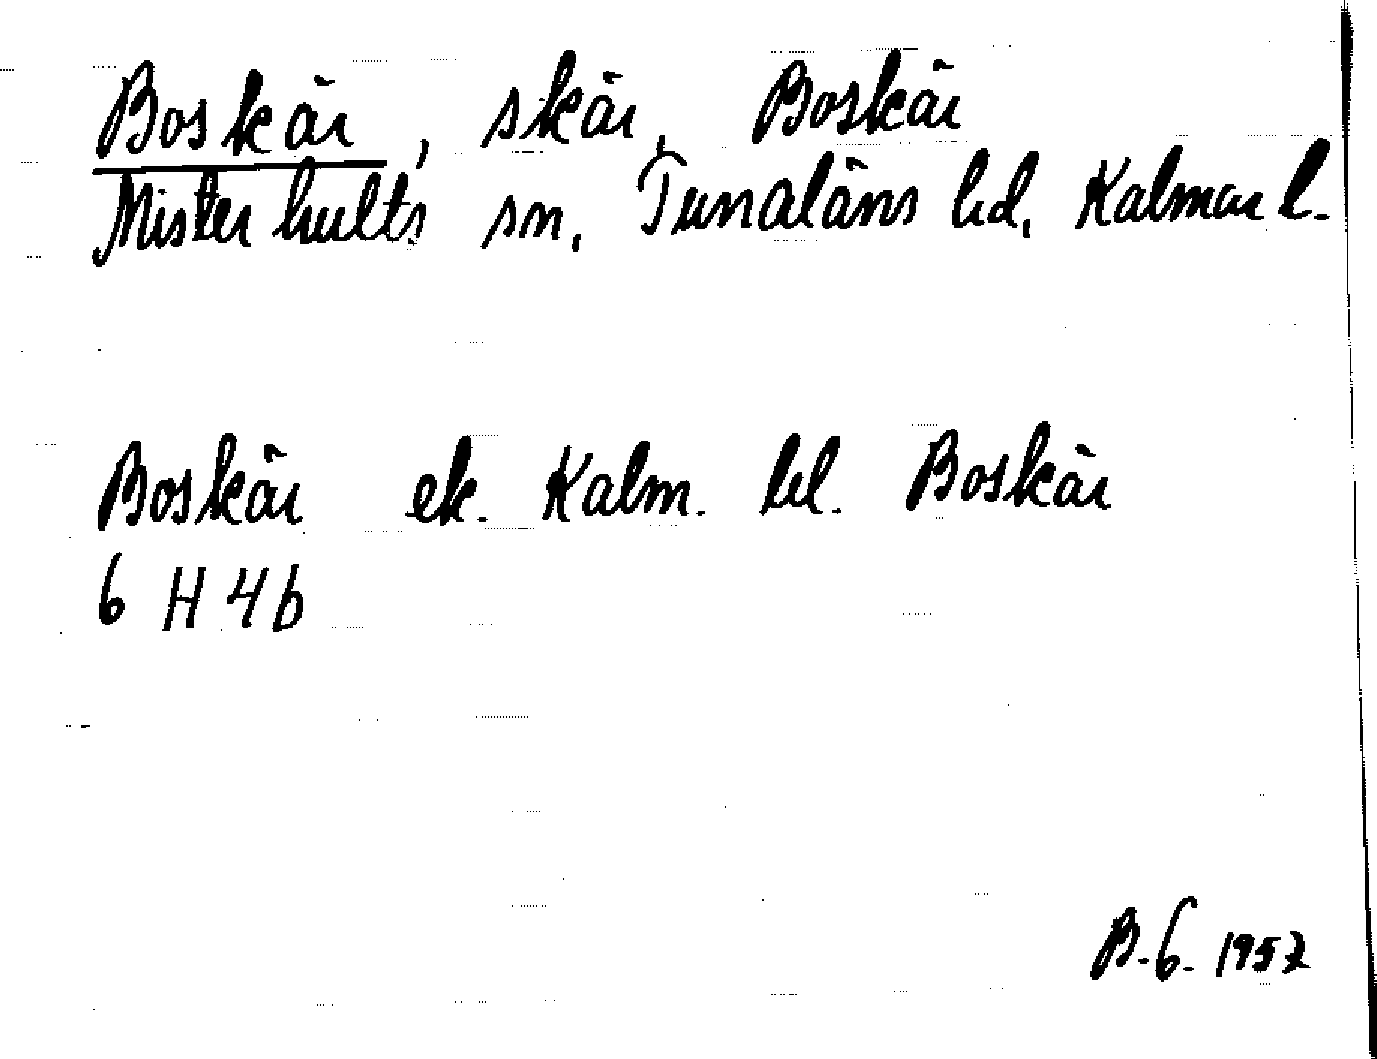 Boskär, skär, Boskär
Misterhults sn. Tunaläns hd. Kalmar l.
Boskär ek. Kalm. bl. Boskär
6 H 4b
B.G. 1957